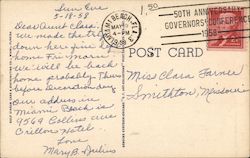 Sun Eve
5-18-58
Dear Aunt Clara,
We made the trip
down here fine
home Fri. Miami
we'll be back
home probably Thurs
before Decoration day
Our address in
Miami Beach is
9564 Collins ave
Crillon Hotel
Love
Mary B.
MIAMI BEACH, FLA.
MAY
4-PM
1958
1.50
50TH ANNIVERSARY
GOVERNORS' CONFERENCE
1958
POST CARD
Miss Clara Farmer
Smithton, Missouri